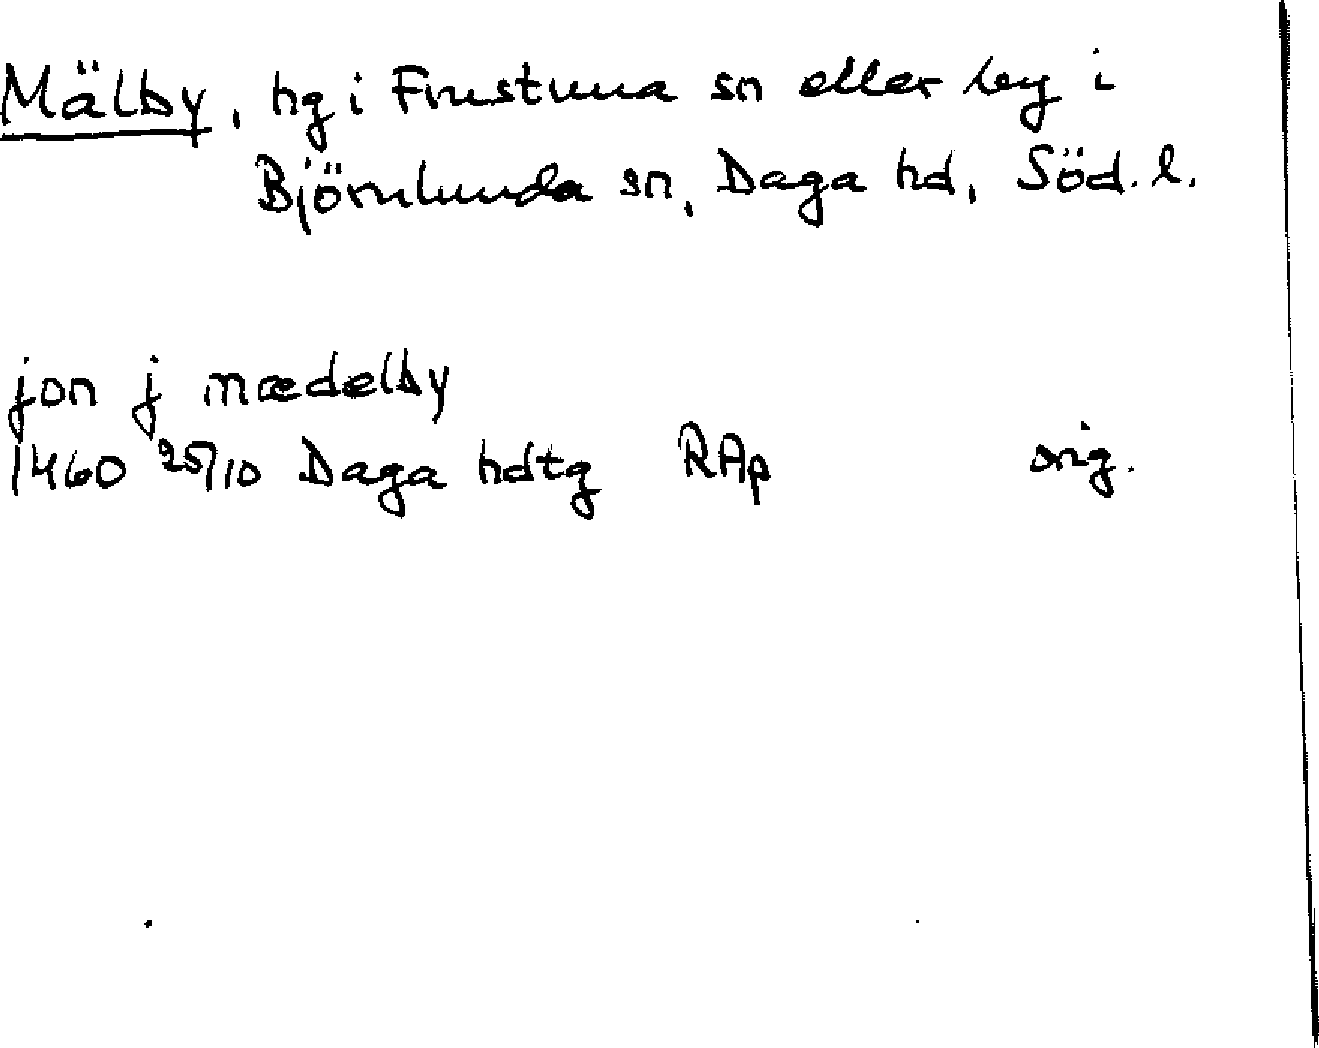 Mälby, hg i Frustuna sn eller by i
Björnlunda sn, Daga hd, Söd. l.
jon j mædelby
1460 25/10 Daga hdtg RAp orig.